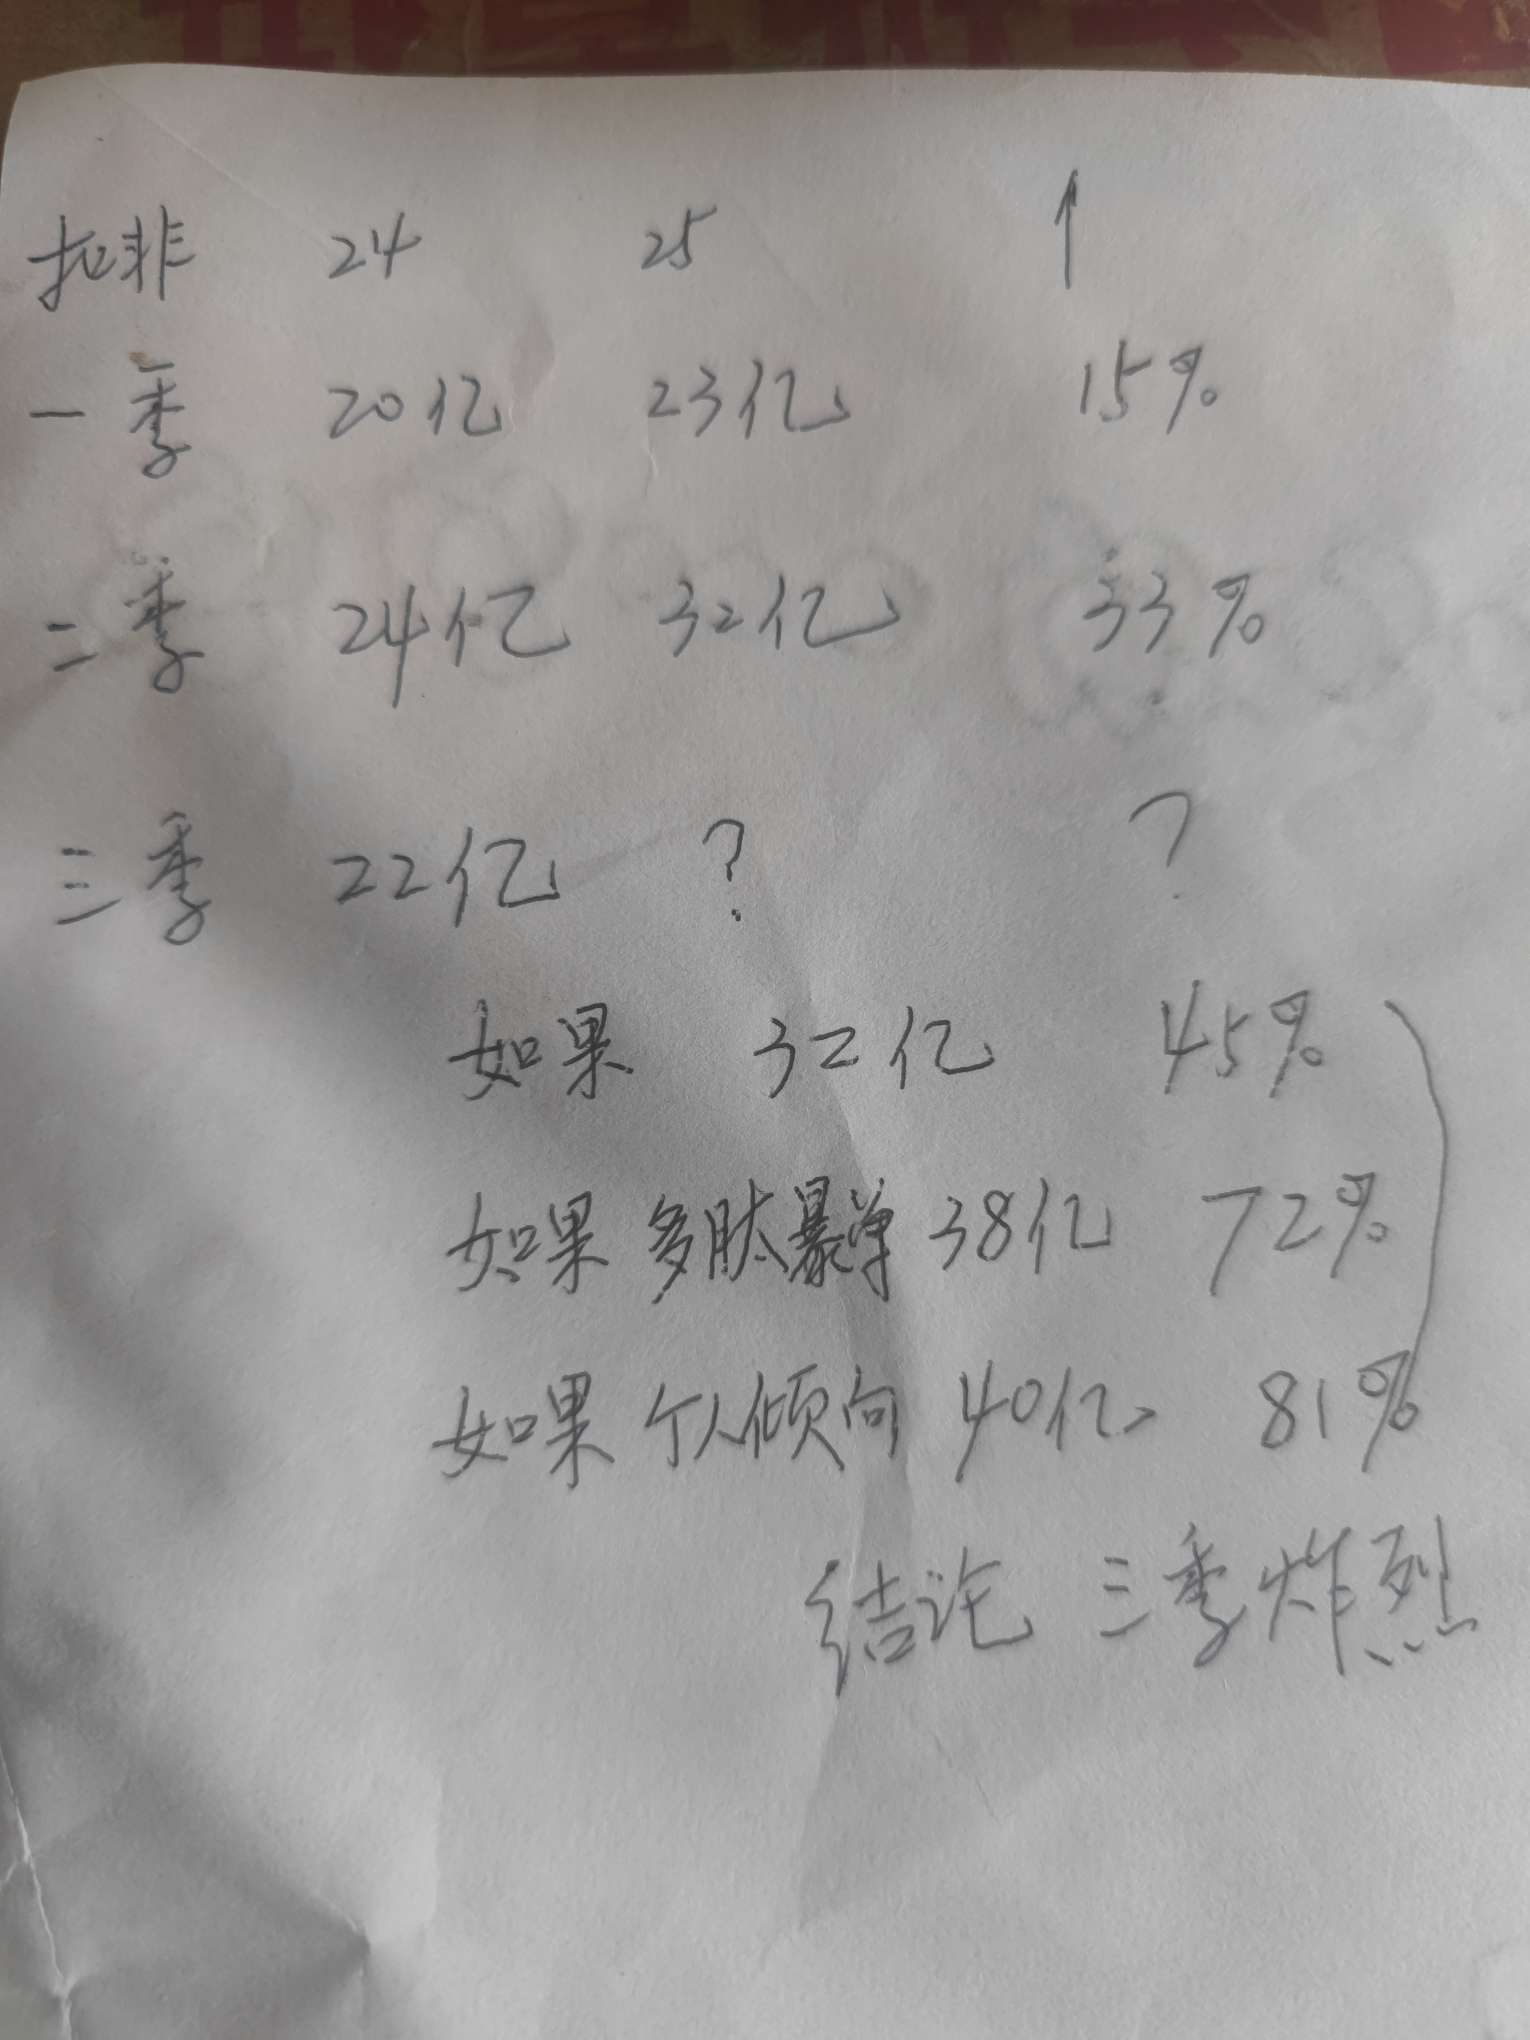 扣非 24 25 ↑
一季 20亿 23亿 15%
二季 24亿 32亿 33%
三季 22亿 ? ?
如果 32亿 45%
如果 多肽暴单 38亿 72%
如果 个人倾向 40亿 81%
结论 三季炸烈